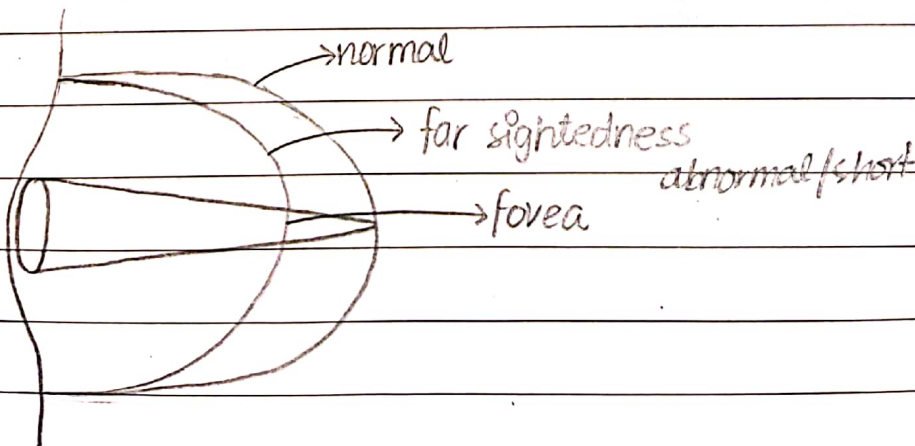 normal
far sightedness
abnormal/short
fovea